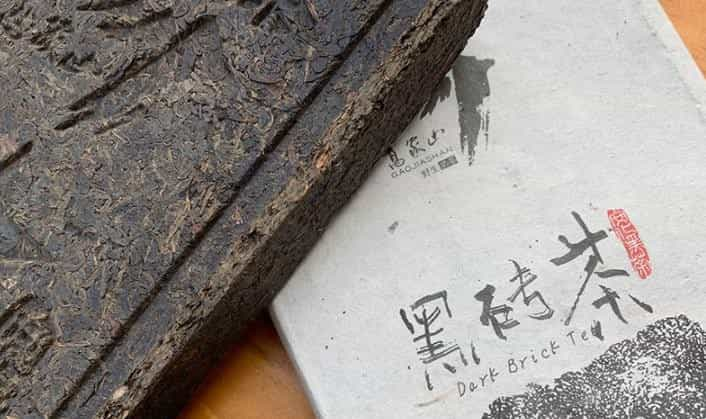 高家山
GAOJIASHAN
野生
黑砖茶
Dark Brick Tea